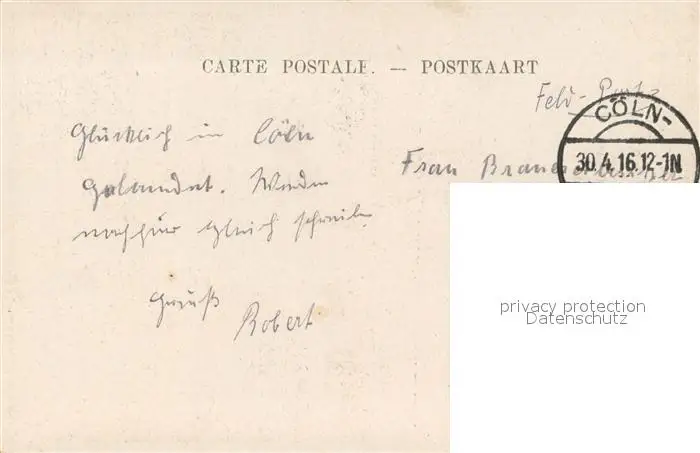 CARTE POSTALE. — POSTKAART
Feld-Postk
CÖLN-
30.4.16.12-1N
Glücklich in Cöln
gelandet. Werde
nachher gleich schreiben
Frau
Gruß
Robert
privacy protection
Datenschutz